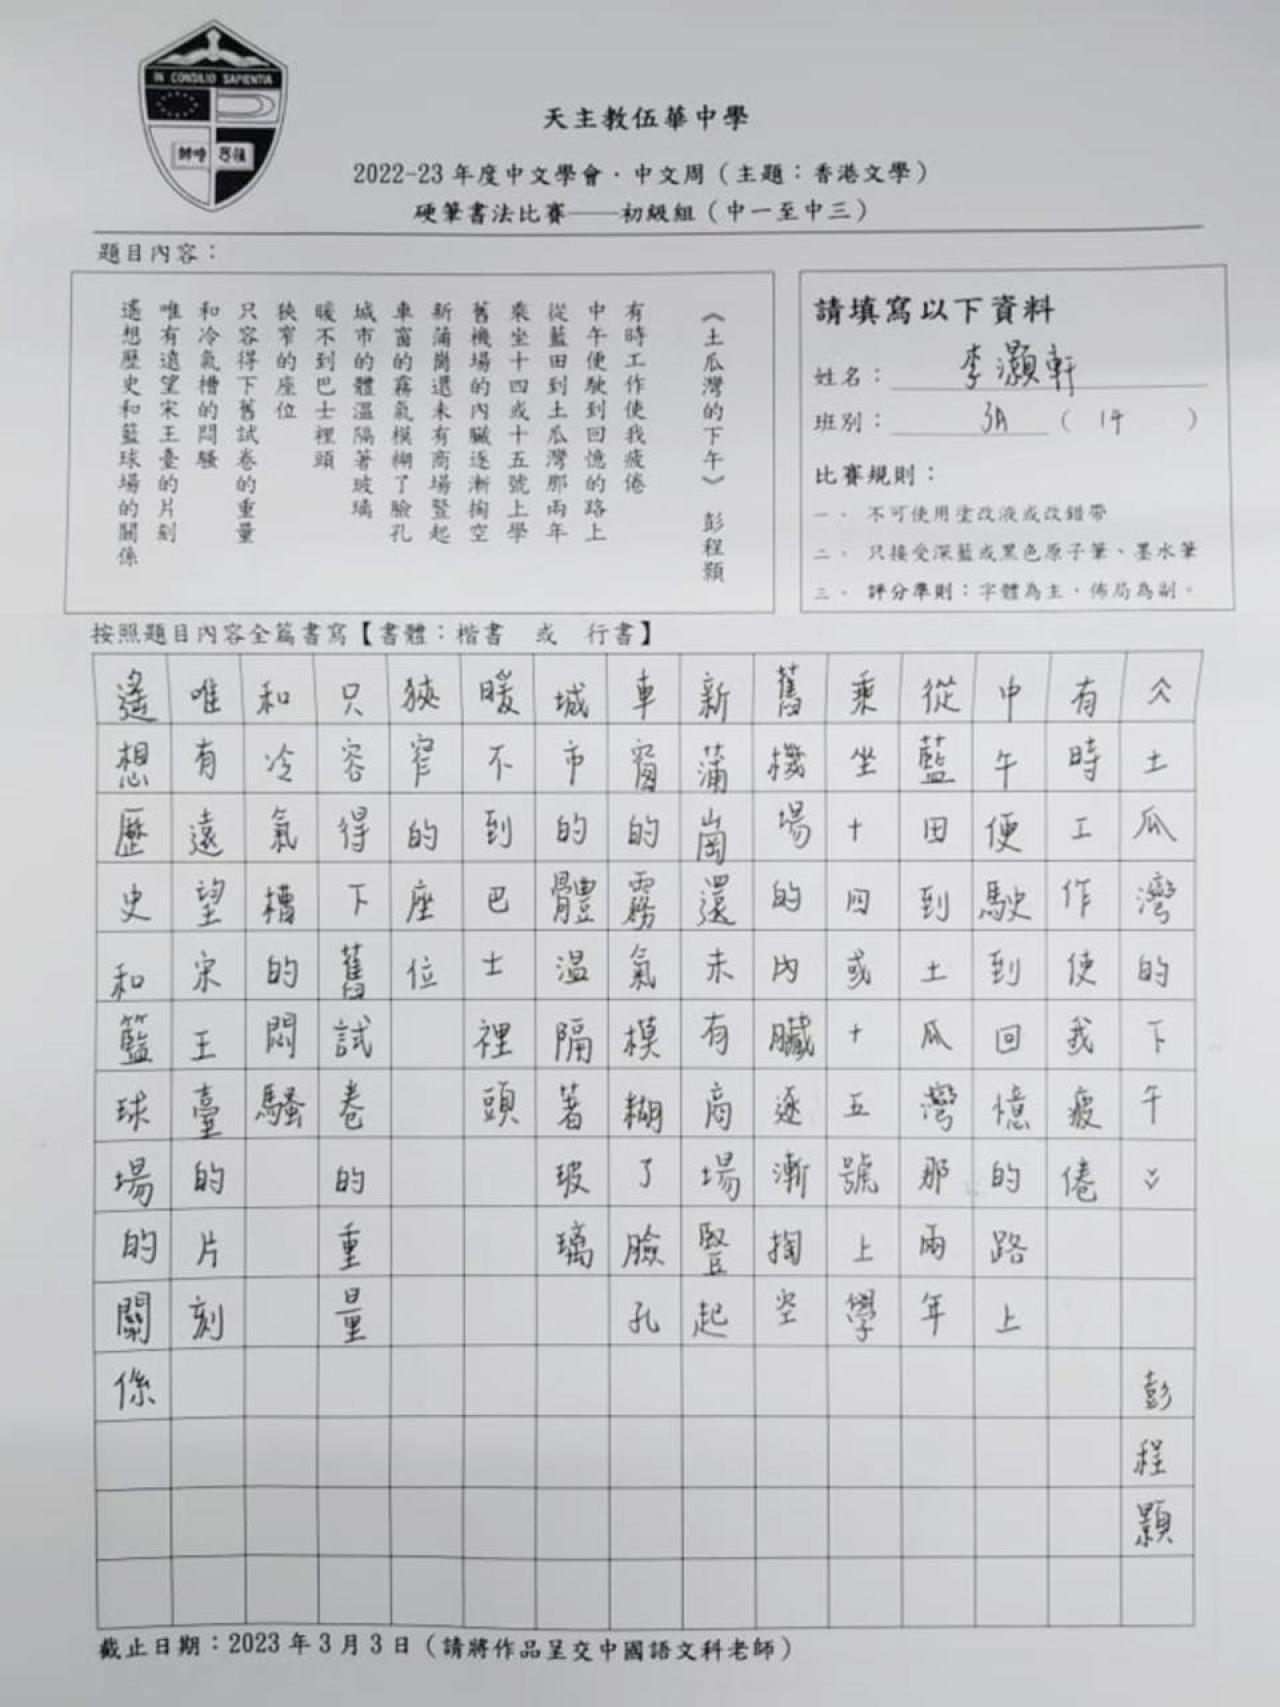 IN CONSILIO SAPIENTIA
天主教伍華中學
2022-23 年度中文學會．中文周（主題：香港文學）
硬筆書法比賽——初級組（中一至中三）
題目內容：
《土瓜灣的下午》 彭程顥
有時工作使我疲倦
中午便駛到回憶的路上
從藍田到土瓜灣那兩年
乘坐十四或十五號上學
舊機場的內臟逐漸掏空
新蒲崗還未有商場豎起
車窗的霧氣模糊了臉孔
城市的體溫隔著玻璃
暖不到巴士裡頭
狹窄的座位
只容得下舊試卷的重量
和冷氣槽的悶騷
唯有遠望宋王臺的片刻
遙想歷史和籃球場的關係
請填寫以下資料
姓名：李灝軒
班別：3A（14）
比賽規則：
一、 不可使用塗改液或改錯帶
二、 只接受深藍或黑色原子筆、墨水筆
三、 評分準則：字體為主，佈局為副。
按照題目內容全篇書寫【書體：楷書 或 行書】
《土瓜灣的下午》 彭程顥
有時工作使我疲倦
中午便駛到回憶的路上
從藍田到土瓜灣那兩年
乘坐十四或十五號上學
舊機場的內臟逐漸掏空
新蒲崗還未有商場豎起
車窗的霧氣模糊了臉孔
城市的體溫隔著玻璃
暖不到巴士裡頭
狹窄的座位
只容得下舊試卷的重量
和冷氣槽的悶騷
唯有遠望宋王臺的片刻
遙想歷史和籃球場的關係
截止日期：2023 年 3 月 3 日（請將作品呈交中國語文科老師）